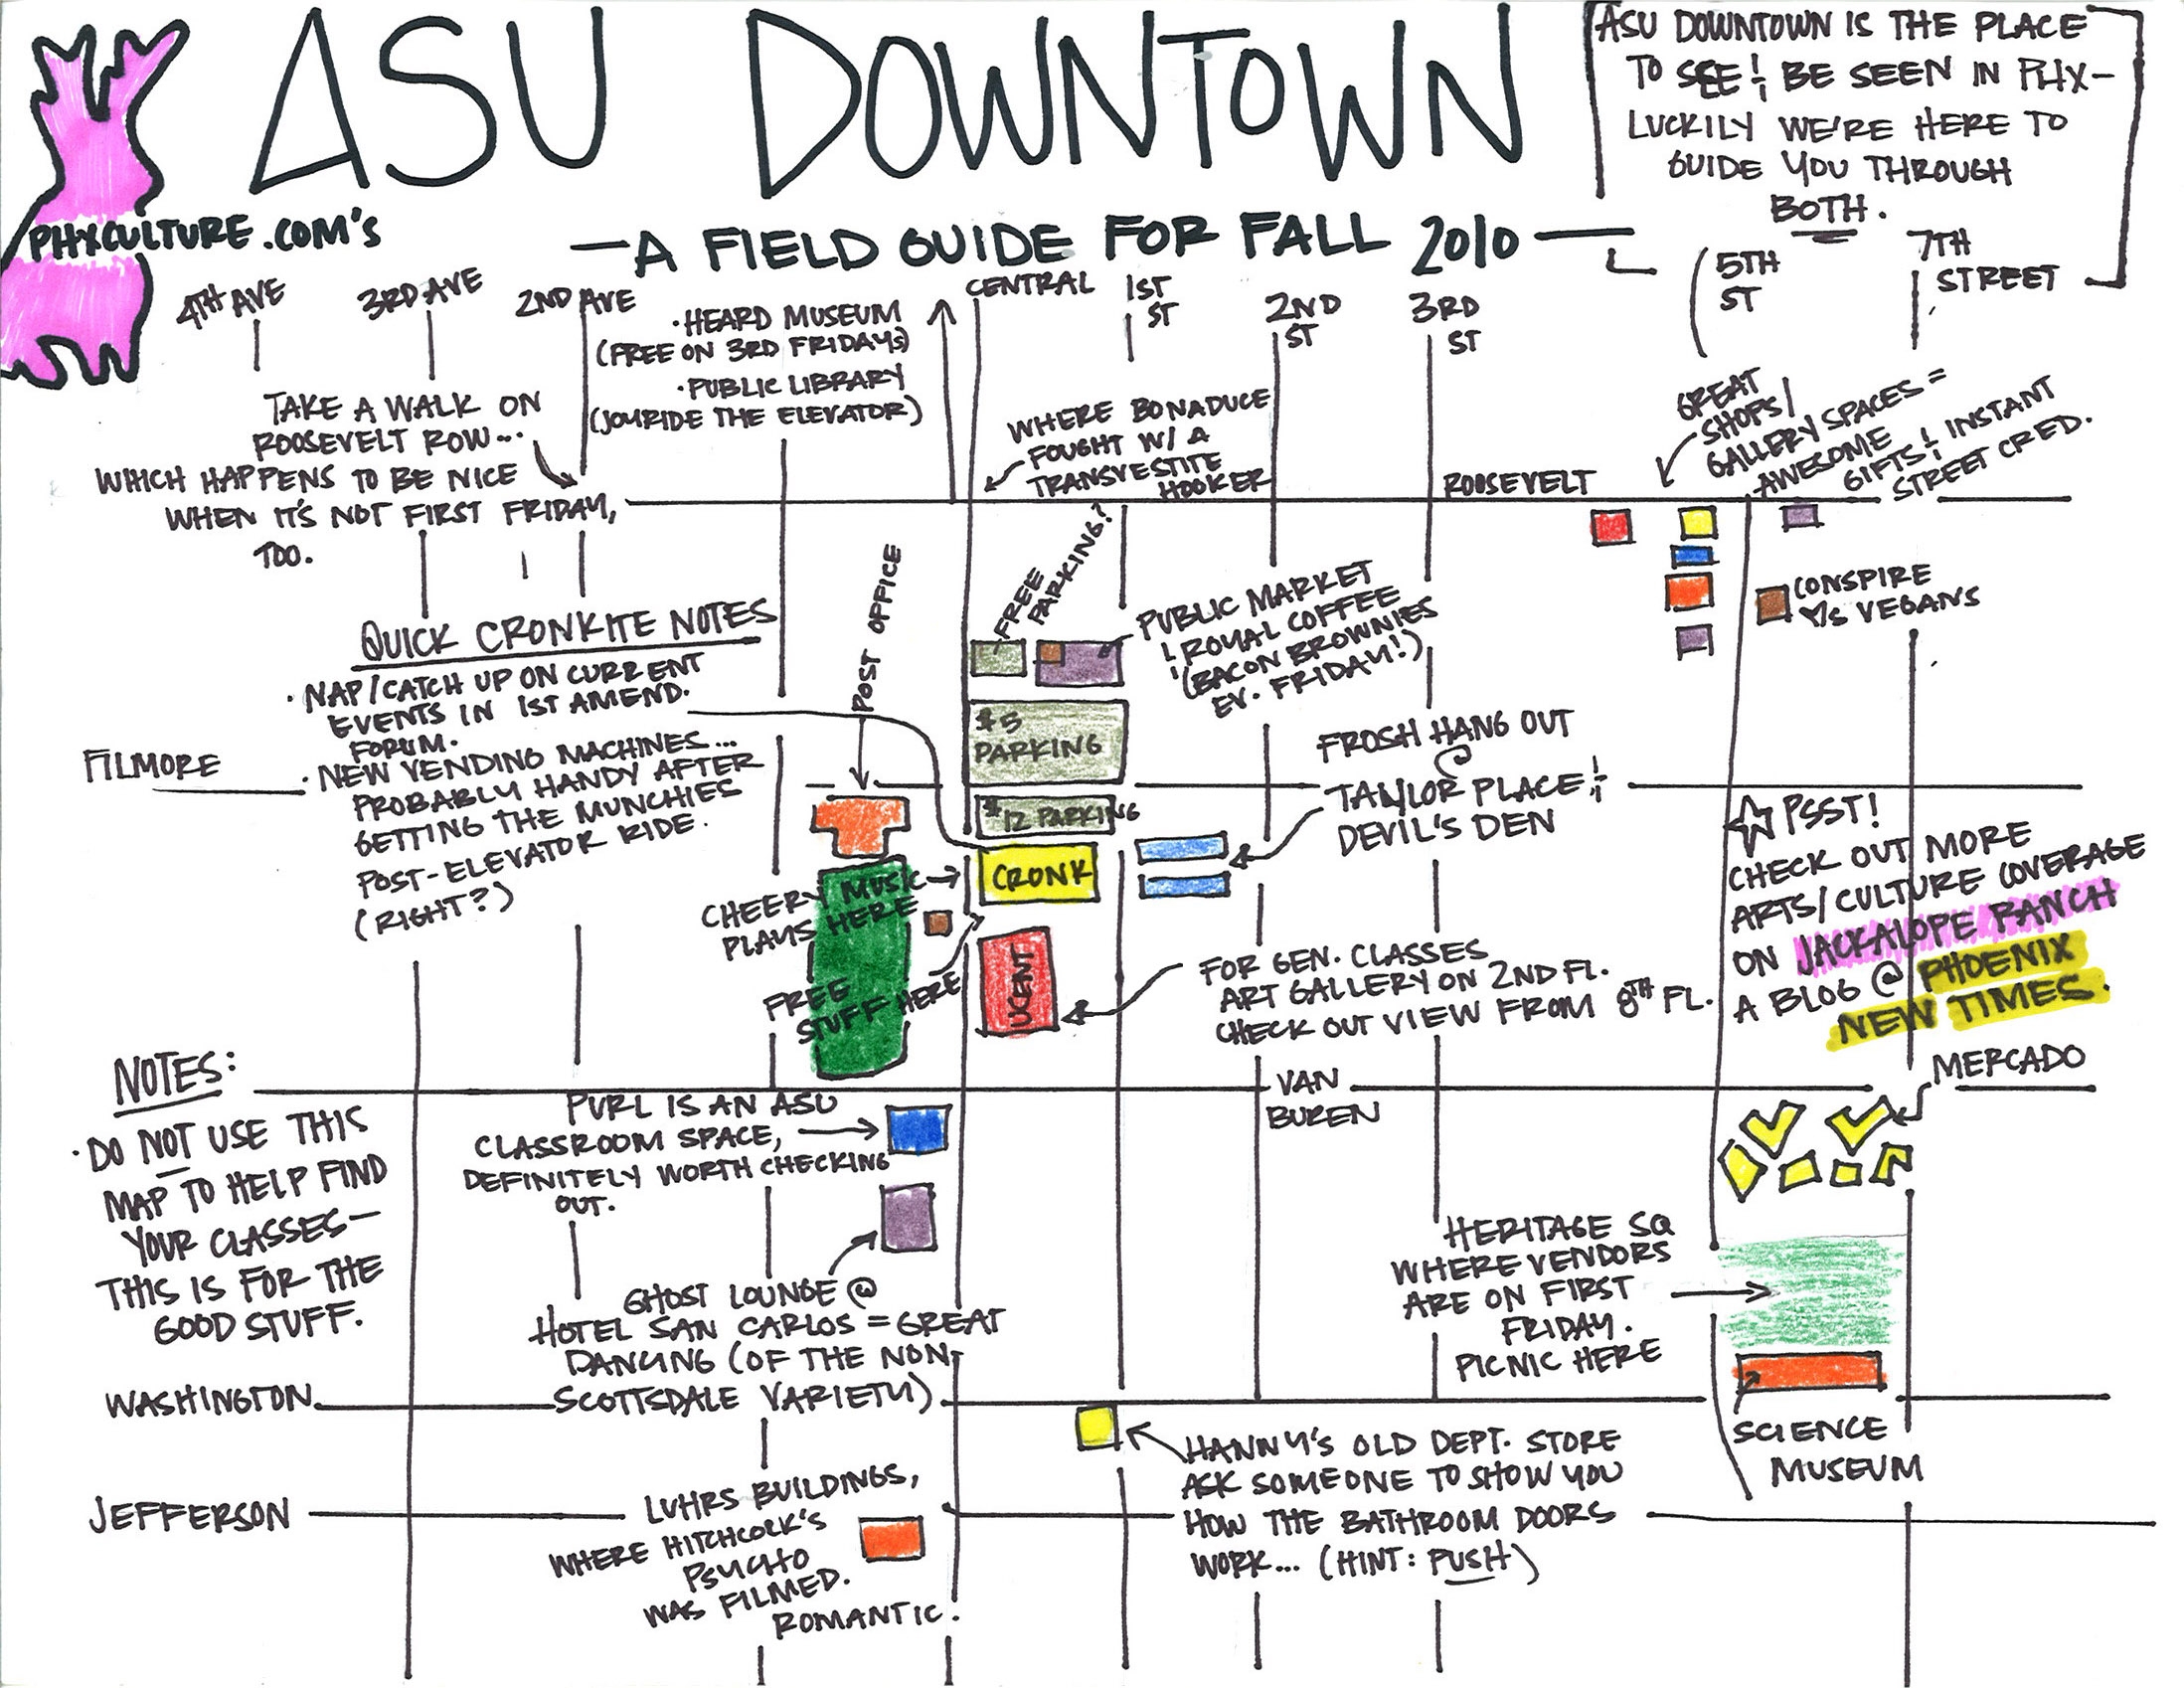 ASU DOWNTOWN
ASU DOWNTOWN IS THE PLACE
TO SEE & BE SEEN IN PHX-
LUCKILY WE'RE HERE TO
GUIDE YOU THROUGH
BOTH.
PHXCULTURE.COM'S
—A FIELD GUIDE FOR FALL 2010—
4TH AVE
3RD AVE
2ND AVE
CENTRAL
1ST
ST
2ND
ST
3RD
ST
5TH
ST
7TH
STREET
·HEARD MUSEUM
(FREE ON 3RD FRIDAYS)
·PUBLIC LIBRARY
(JOYRIDE THE ELEVATOR)
TAKE A WALK ON
ROOSEVELT ROW...
WHICH HAPPENS TO BE NICE
WHEN IT'S NOT FIRST FRIDAY,
TOO.
WHERE BONADUCE
FOUGHT W/ A
TRANSVESTITE
HOOKER
ROOSEVELT
GREAT
SHOPS/
GALLERY SPACES =
AWESOME
GIFTS & INSTANT
STREET CRED.
CONSPIRE
♡s VEGANS
FREE
PARKING?
PUBLIC MARKET
& ROYAL COFFEE
(BACON BROWNIES
EV. FRIDAY!)
POST OFFICE
QUICK CRONKITE NOTES
· NAP/CATCH UP ON CURRENT
EVENTS IN 1ST AMEND.
FORUM.
· NEW VENDING MACHINES...
PROBABLY HANDY AFTER
GETTING THE MUNCHIES
POST-ELEVATOR RIDE.
(RIGHT?)
FILMORE
$5
PARKING
$12 PARKING
FROSH HANG OUT
@
TAYLOR PLACE &
DEVIL'S DEN
CRONK
CHEERY MUSIC
PLAYS HERE
FREE
STUFF HERE
UCENT
FOR GEN. CLASSES
ART GALLERY ON 2ND FL.
CHECK OUT VIEW FROM 8TH FL.
PSST!
CHECK OUT MORE
ARTS/CULTURE COVERAGE
ON JACKALOPE RANCH
A BLOG @ PHOENIX
NEW TIMES.
MERCADO
NOTES:
· DO NOT USE THIS
MAP TO HELP FIND
YOUR CLASSES—
THIS IS FOR THE
GOOD STUFF.
VAN
BUREN
PURL IS AN ASU
CLASSROOM SPACE,
DEFINITELY WORTH CHECKING
OUT.
GHOST LOUNGE @
HOTEL SAN CARLOS = GREAT
DANCING (OF THE NON-
SCOTTSDALE VARIETY)
HERITAGE SQ
WHERE VENDORS
ARE ON FIRST
FRIDAY.
PICNIC HERE
WASHINGTON
SCIENCE
MUSEUM
HANNY'S OLD DEPT. STORE
ASK SOMEONE TO SHOW YOU
HOW THE BATHROOM DOORS
WORK... (HINT: PUSH)
JEFFERSON
LUHRS BUILDINGS,
WHERE HITCHCOCK'S
PSYCHO
WAS FILMED.
ROMANTIC.